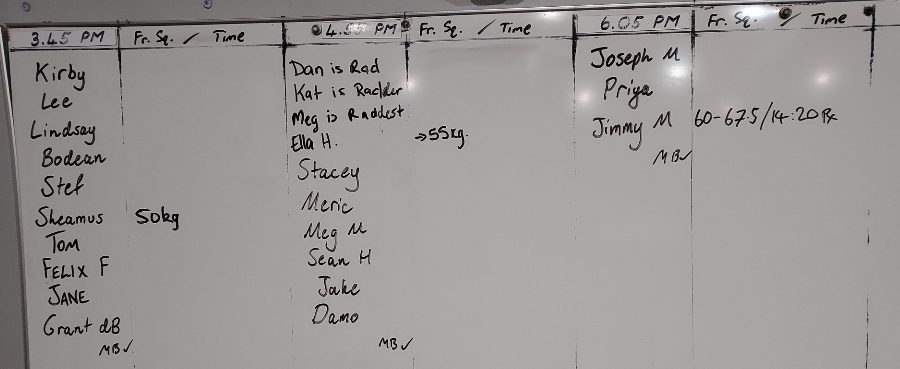 3.45 PM Fr. Sq. / Time
Kirby
Lee
Lindsay
Bodean
Stef
Sheamus 50kg
Tom
FELIX F
JANE
Grant dB
MB✓
PM Fr. Sq. / Time
Dan is Rad
Kat is Radder
Meg is Raddest
Ella H. →55kg.
Stacey
Meric
Meg M
Sean H
Jake
Damo
MB✓
6.05 PM Fr. Sq. / Time
Joseph M
Priya
Jimmy M 60-67.5/14:20 Rx
MB✓